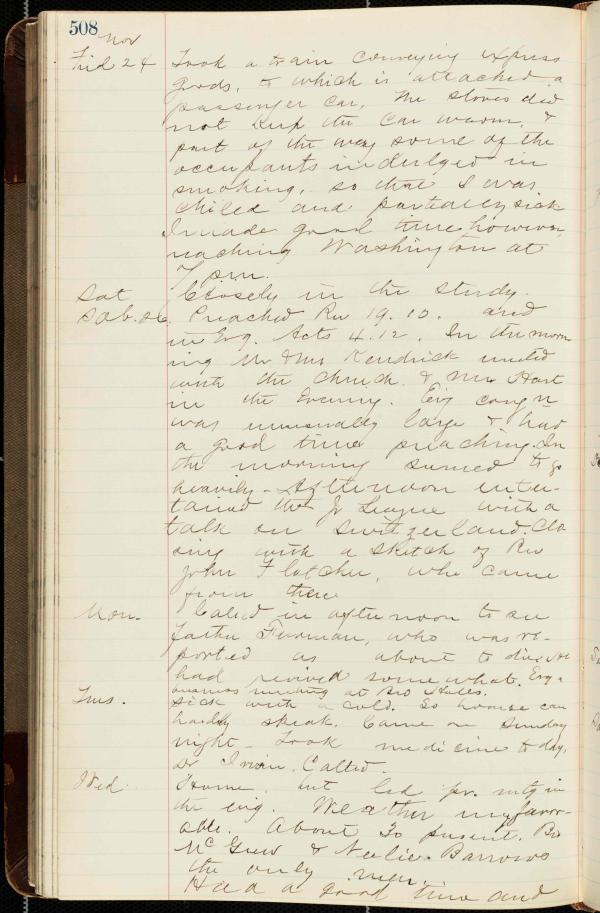 508
Nov
Frid 24 Took a train conveying express
goods, to which is attached a
passenger car. The stoves did
not keep the car warm, &
part of the way some of the
occupants indulged in
smoking, so that I was
chiled and partially sick
I made good time however
reaching Washington at
7 pm.
Sat Closely in the study.
Sab. 26. Preached Rev 19. 10. and
in Evg. Acts 4.12. In the morn
ing Mr & Mrs Kendrick united
with the church & Mrs Hart
in the Evening. Evg cong'n
was unusually large & had
a good time preaching. In
the morning seemed to go
heavily - Afternoon enter-
tained the Jr League with a
talk on Switzerland. Clo
sing with a sketch of Rev
John Fletcher, who came
from there
Mon. Called in afternoon to see
Father Furman, who was re-
ported as about to die. He
had revived somewhat. Evg a
business meeting at Bro Hulles.
Tues. Sick with a cold. So hoarse can
hardly speak. Came on Sunday
night - Took medicine to day.
Dr Irwin. Called.
Wed. Home, but led pr. mtg in
the evg. Weather unfavor-
able. About 30 present. Bro
McGrew & Neelie Barrows
the only men.
Had a good time and